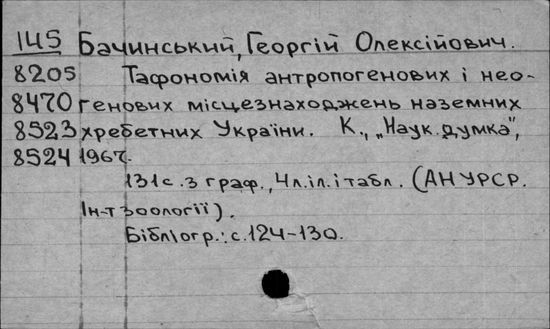 145 Бачинський, Георгій Олексійович.
8205 Тафономія антропогенових і нео-
8470 генових місцезнаходжень наземних
8523 хребетних України. К., „Наук. думка",
8524 1967.
131с. з граф., 4л.іл. і табл. (АН УРСР.
Ін-т зоології).
Бібліогр.: с.124-130.